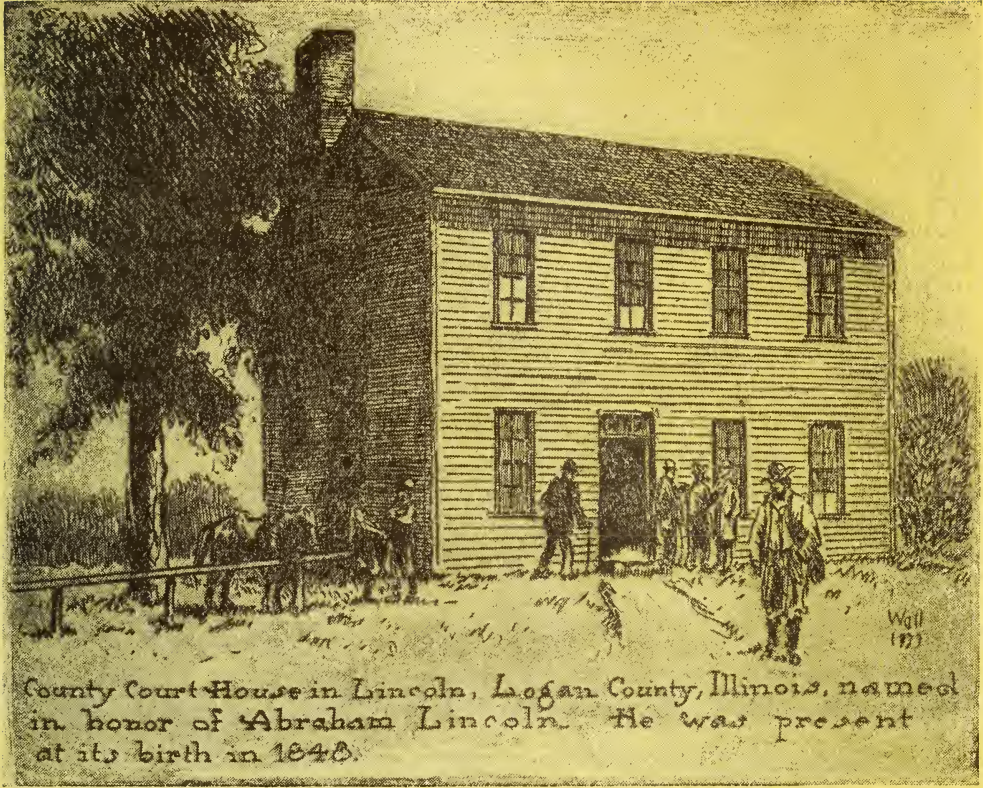 Wall
County Court House in Lincoln, Logan County, Illinois, named
in honor of Abraham Lincoln. He was present
at its birth in 1848.